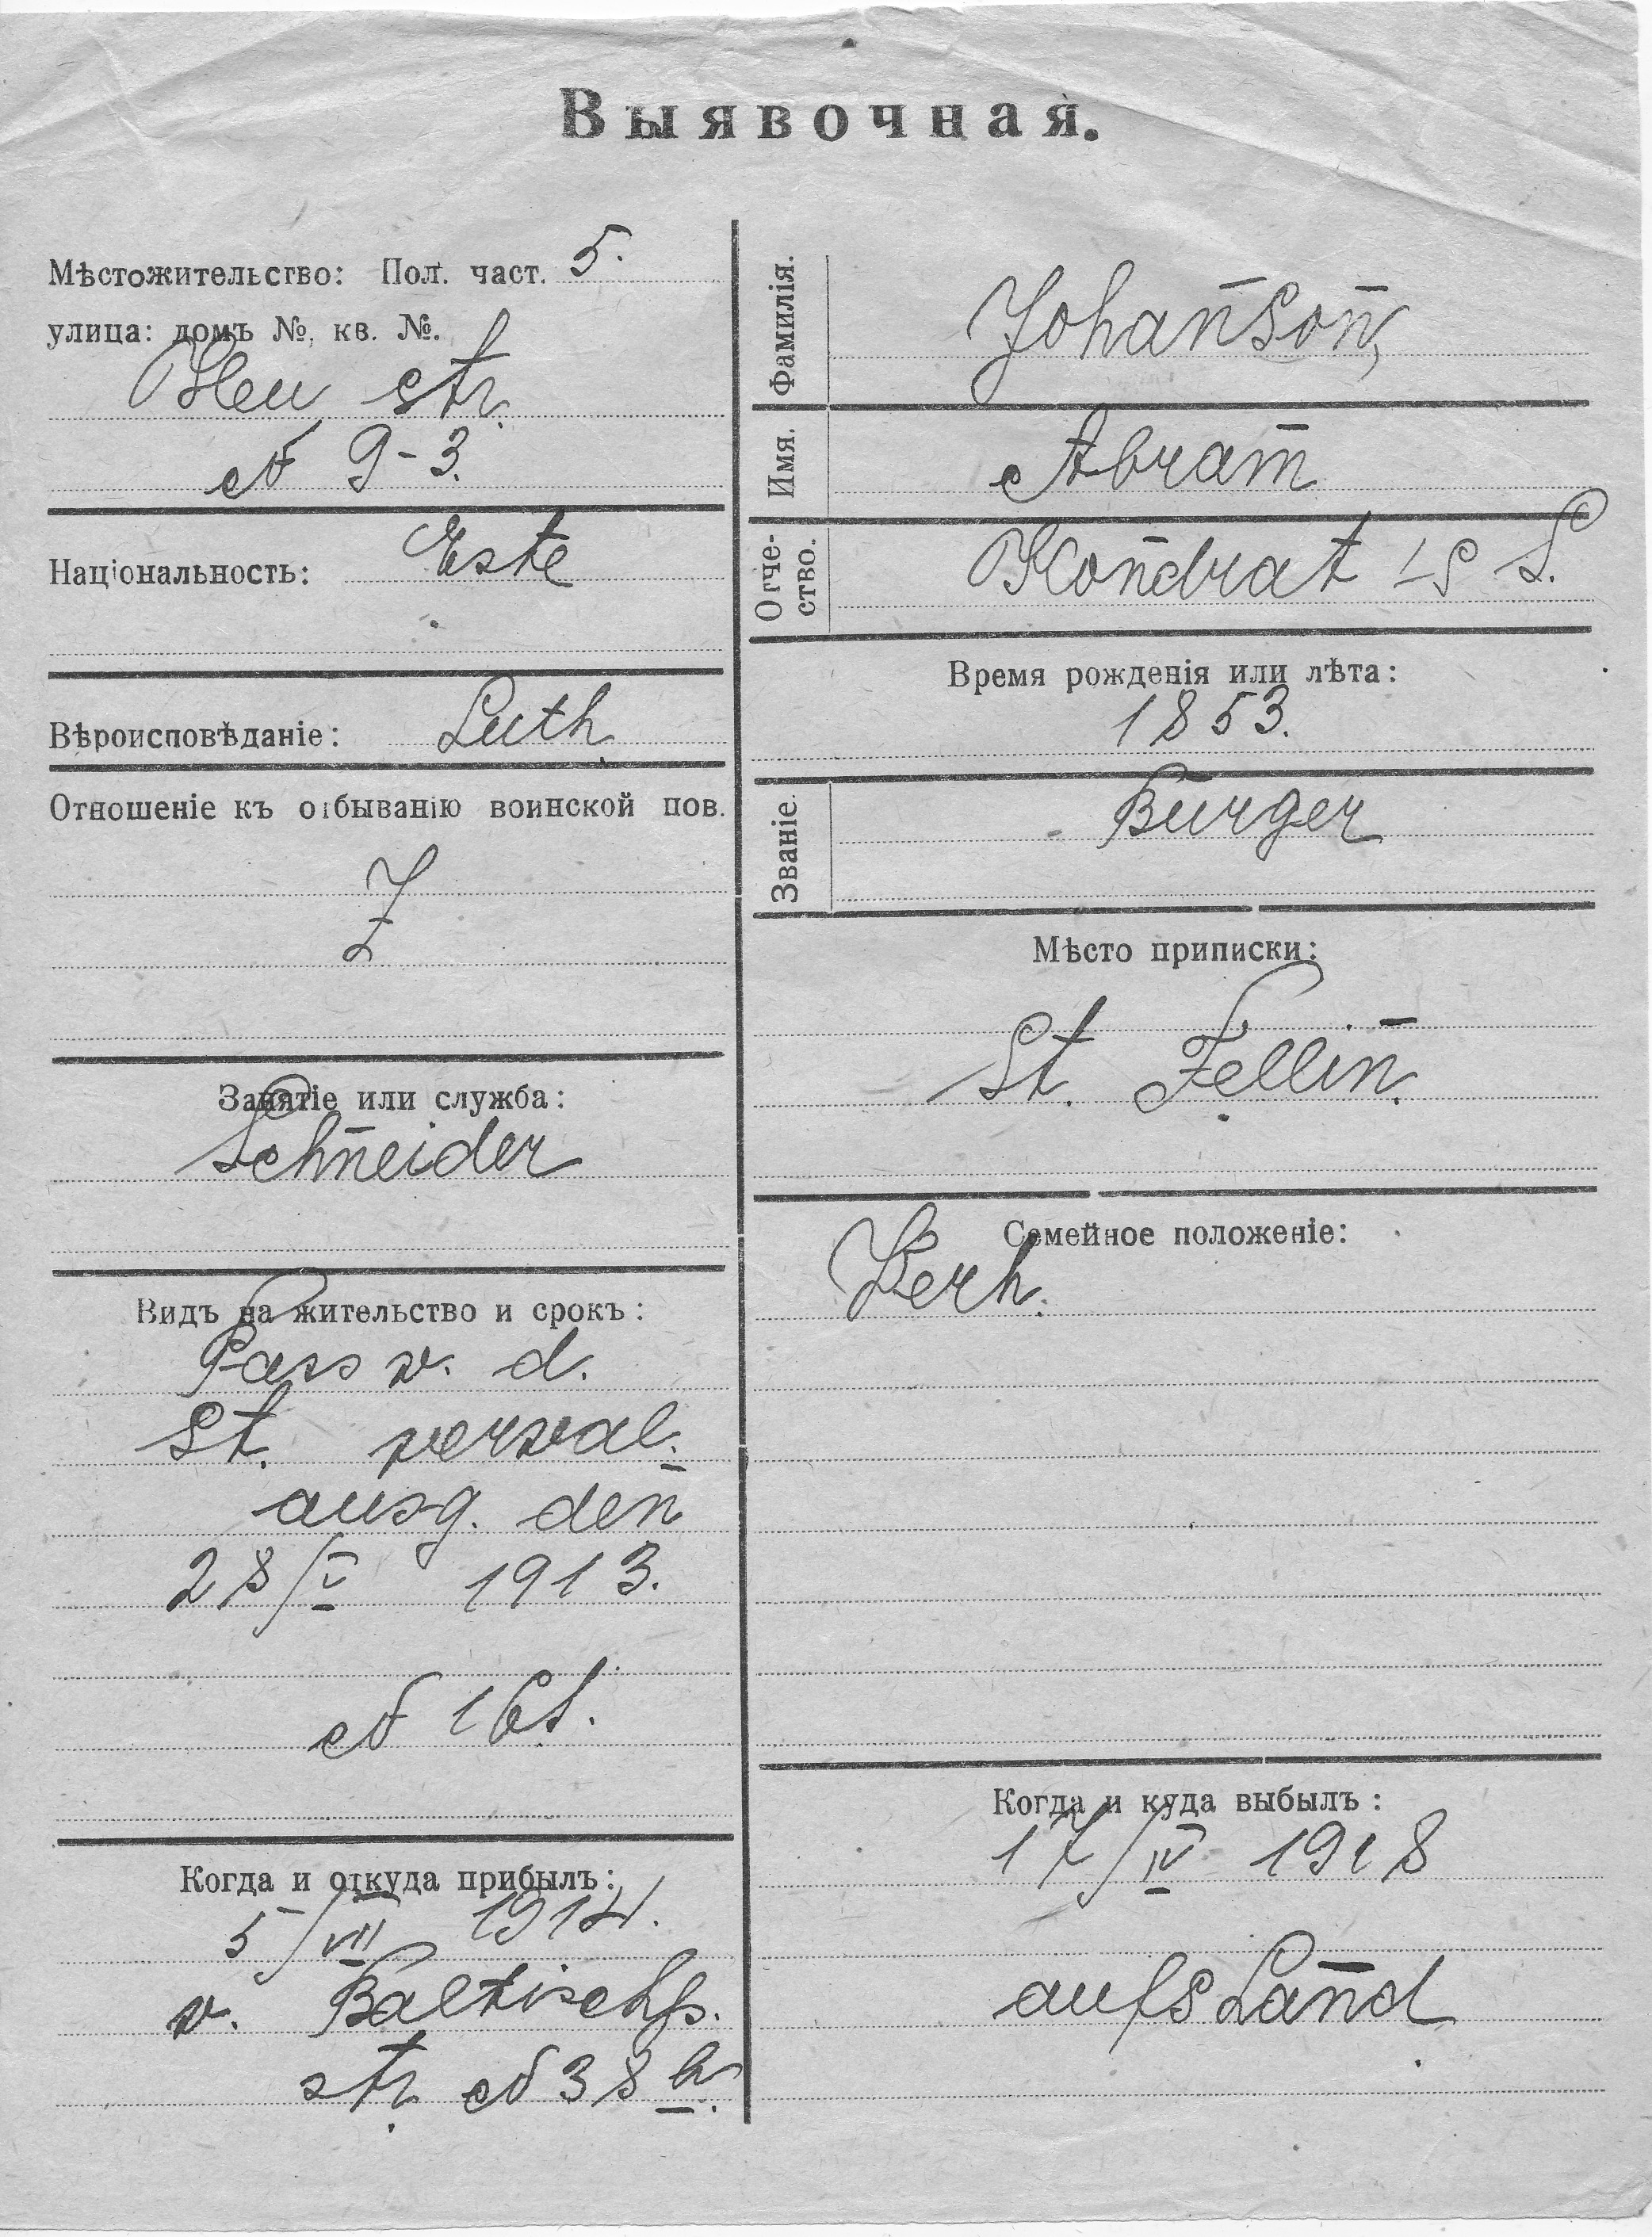 Выявочная.
Мѣстожительство: Пол. част. 5.
улица: домъ №, кв. №.
Heu str.
№ 9-3.
Національность: Este
Вѣроисповѣданіе: Luth
Отношеніе къ отбыванію воинской пов.
Занятіе или служба:
Schneider
Видъ на жительство и срокъ:
Pass v. d.
St. verval.
ausg. den
28/V 1913.
№ 161.
Когда и откуда прибылъ:
5/VII 1914.
v. Baltischp.
str. № 38
Фамилія. Johanson,
Имя. Abram
Отче-
ство. Kondrat S.
Время рожденія или лѣта:
1853.
Званіе. Bürger
Мѣсто приписки:
St. Fellin.
Семейное положеніе:
Verh.
Когда и куда выбылъ:
17/IV 1918
aufs Land